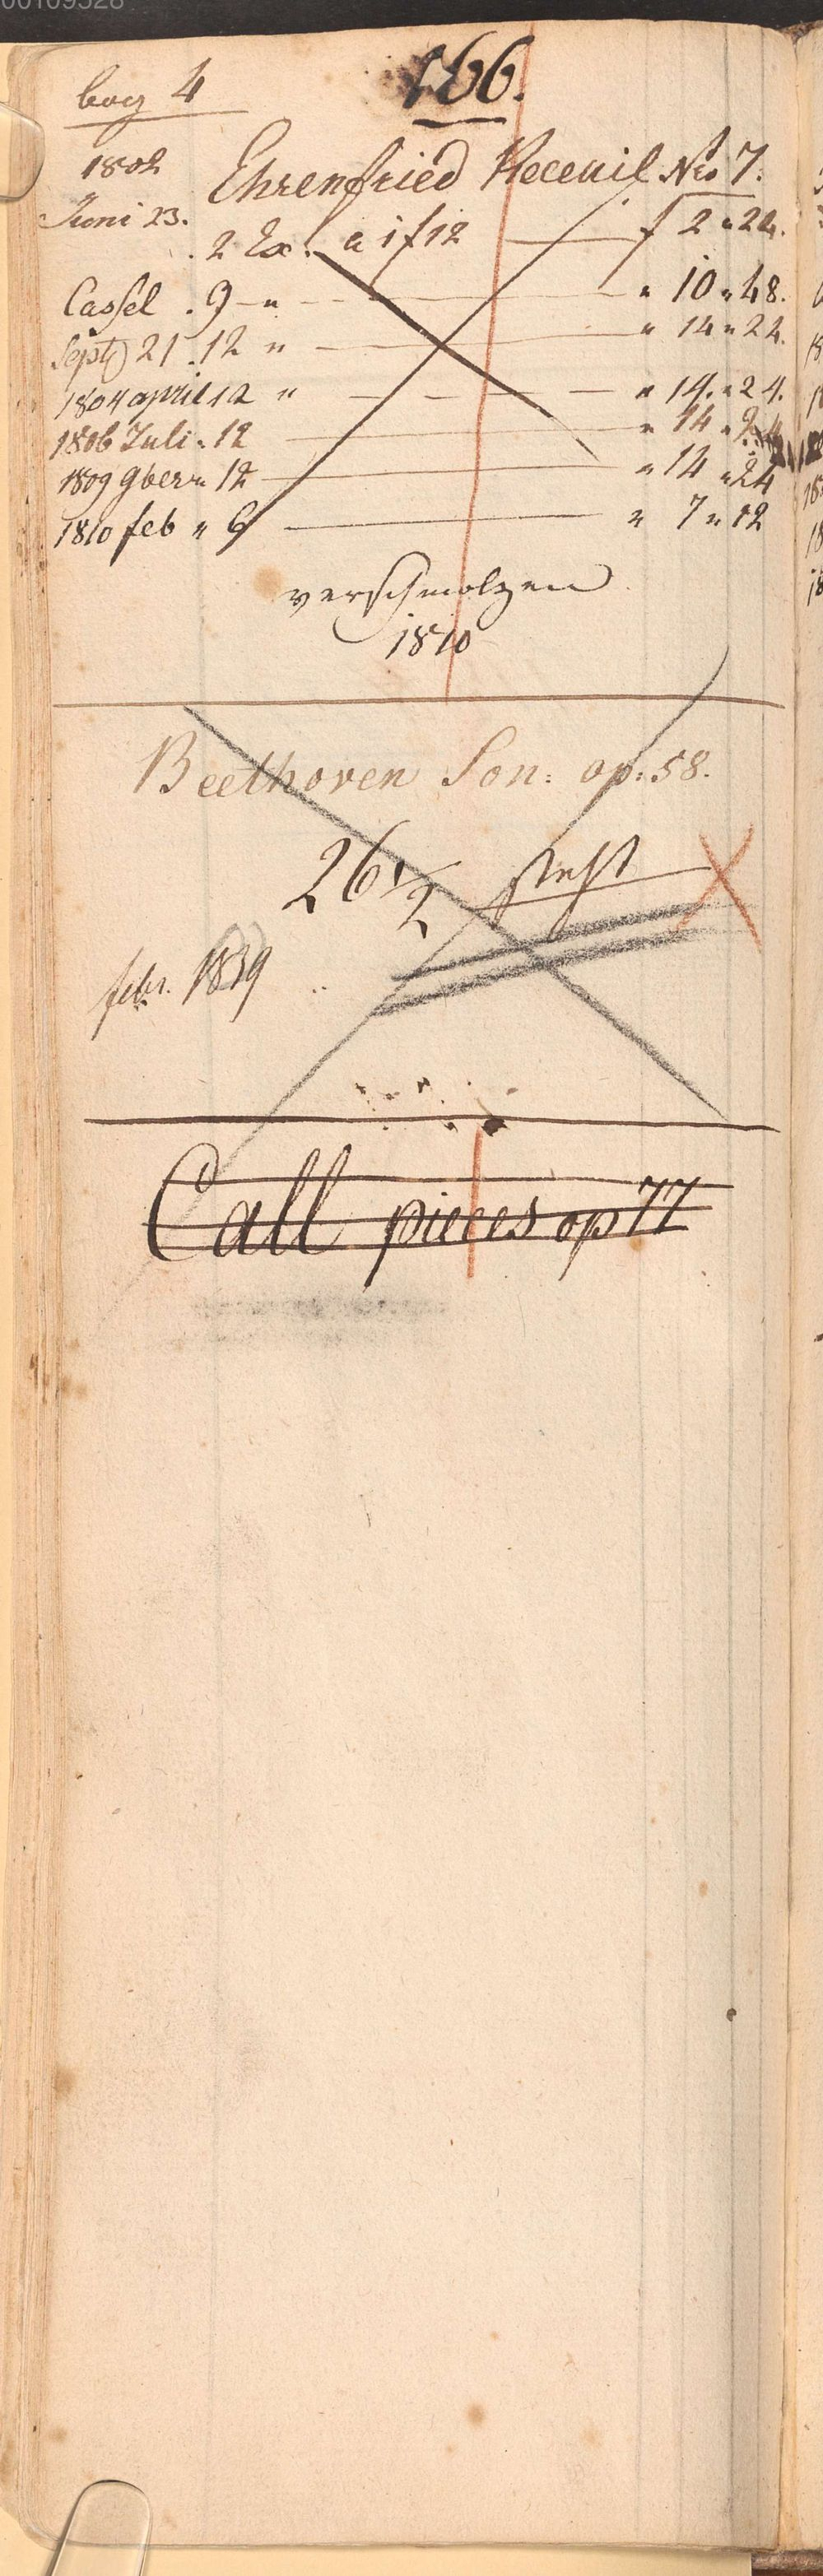 bog 4
166.
1802 Ehrenfried Receuil Nro 7.
Juni 23. 2 Ex. a 1 f 12 — f 2 " 24.
Cassel . 9 — " — " 10 " 48.
Septb 21 . 12 " — " 14 " 24.
1804 april 12 " — " 14. " 24.
1806 Juli " 12 — " 14 " 24
1809 9ber " 12 — " 14 " 24
1810 feb " 6 — " 7 " 12
verschmolzen
1810
Beethoven Son: op: 58.
26 1/2 steht
febr. 1839
Call pieces op 77